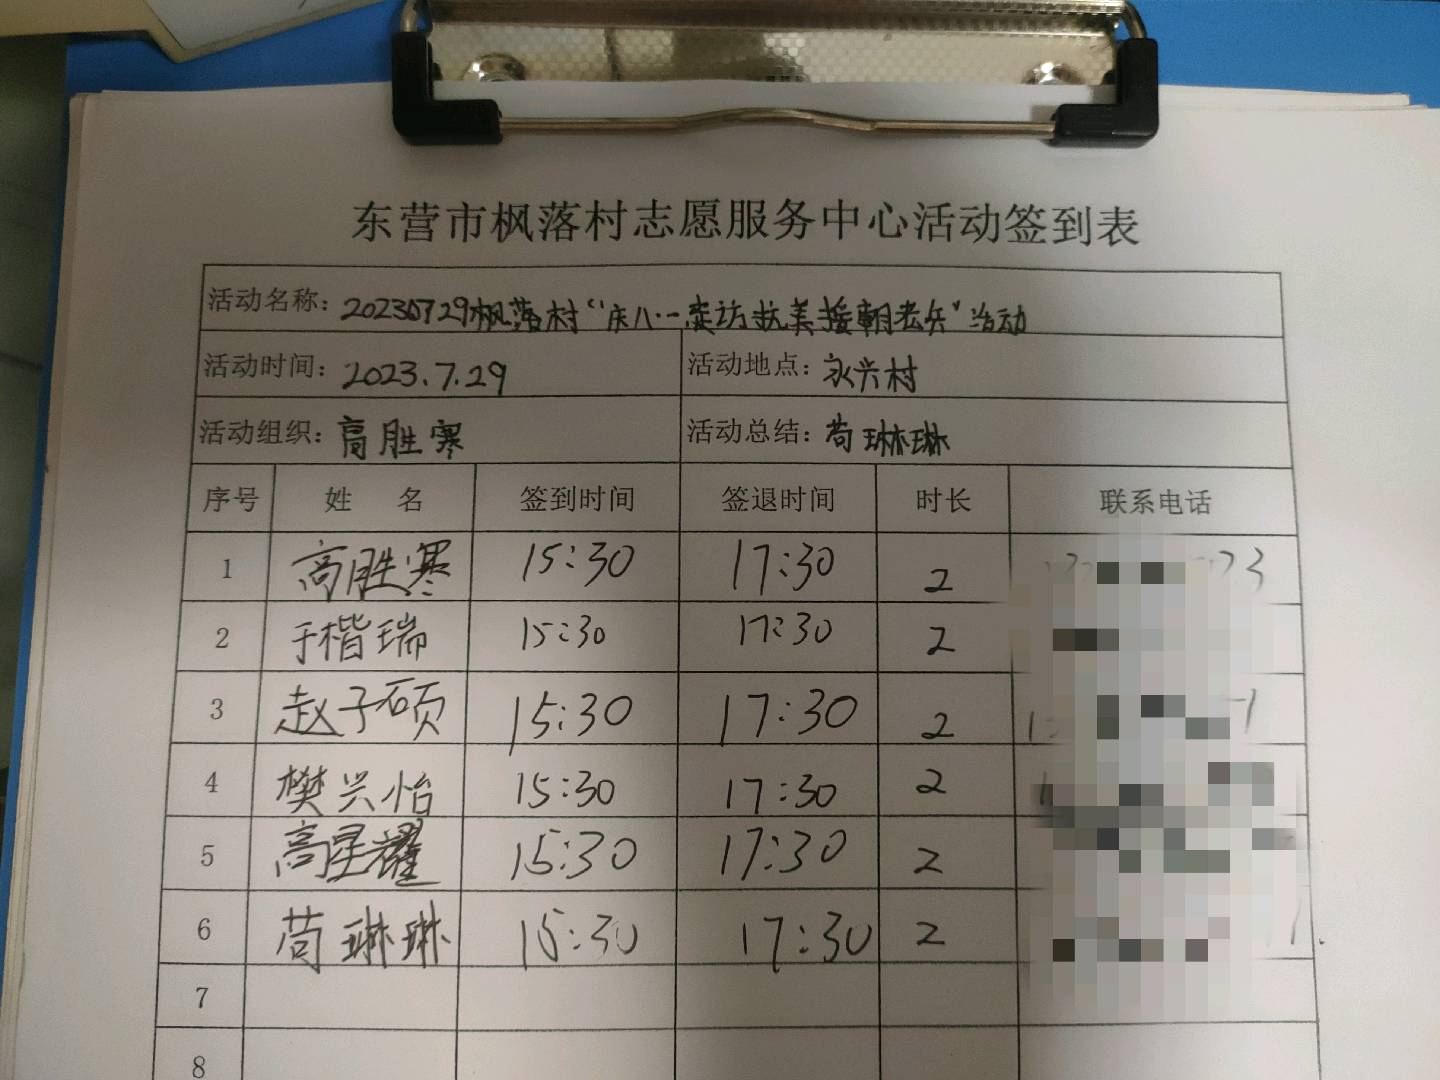 东营市枫落村志愿服务中心活动签到表
活动名称：20230729枫落村“庆八·一走访抗美援朝老兵”活动
活动时间：2023.7.29 活动地点：永兴村
活动组织：高胜寒 活动总结：苟琳琳
序号 姓 名 签到时间 签退时间 时长 联系电话
1 高胜寒 15:30 17:30 2
2 于楷瑞 15:30 17:30 2
3 赵子硕 15:30 17:30 2
4 樊兴怡 15:30 17:30 2
5 高星耀 15:30 17:30 2
6 苟琳琳 15:30 17:30 2
7
8